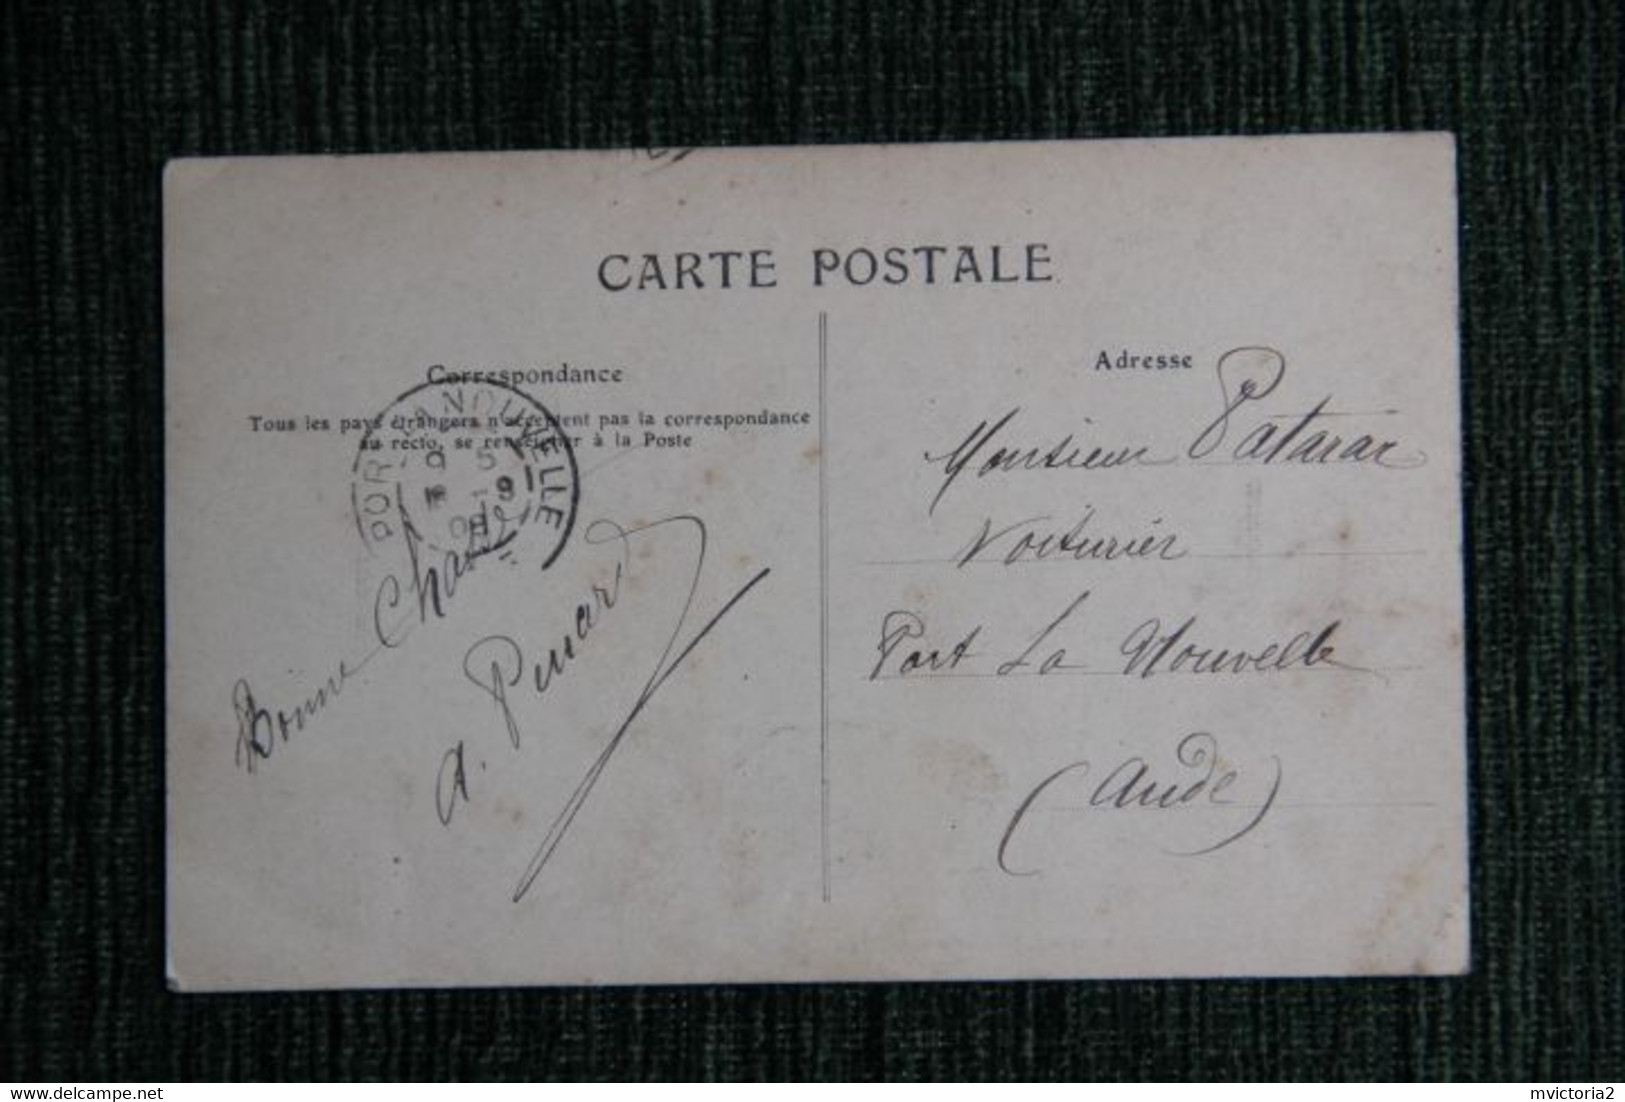 CARTE POSTALE
Correspondance
Tous les pays étrangers n'acceptent pas la correspondance
au recto, se renseigner à la Poste
PORT LA NOUVELLE
9 5
-9
09
Bonne Chance
A. Pinard
Adresse
Monsieur Patarar
Voiturier
Port La Nouvelle
(Aude)
www.delcampe.net
mvictoria2